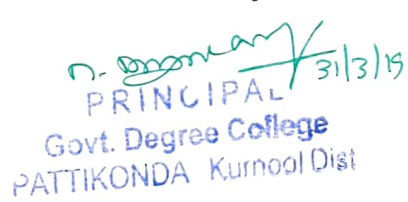 31/3/19
PRINCIPAL
Govt. Degree College
PATTIKONDA Kurnool Dist